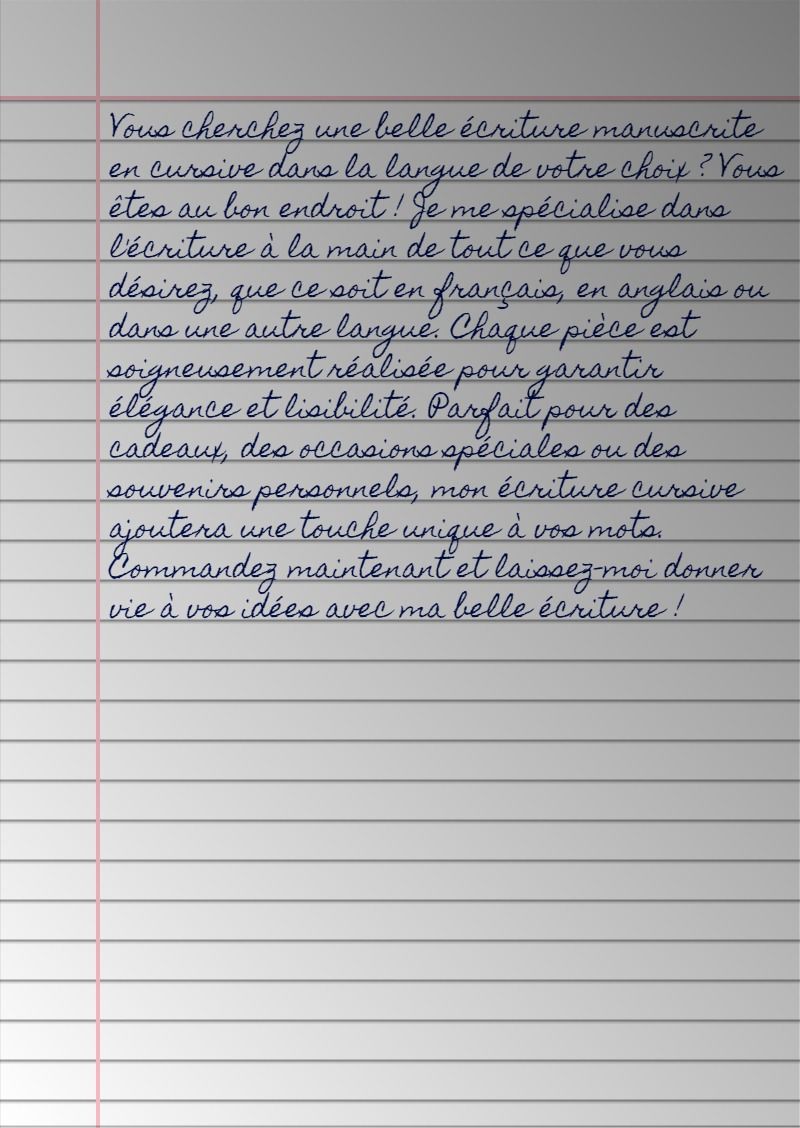 Vous cherchez une belle écriture manuscrite
en cursive dans la langue de votre choix ? Vous
êtes au bon endroit ! Je me spécialise dans
l'écriture à la main de tout ce que vous
désirez, que ce soit en français, en anglais ou
dans une autre langue. Chaque pièce est
soigneusement réalisée pour garantir
élégance et lisibilité. Parfait pour des
cadeaux, des occasions spéciales ou des
souvenirs personnels, mon écriture cursive
ajoutera une touche unique à vos mots.
Commandez maintenant et laissez-moi donner
vie à vos idées avec ma belle écriture !